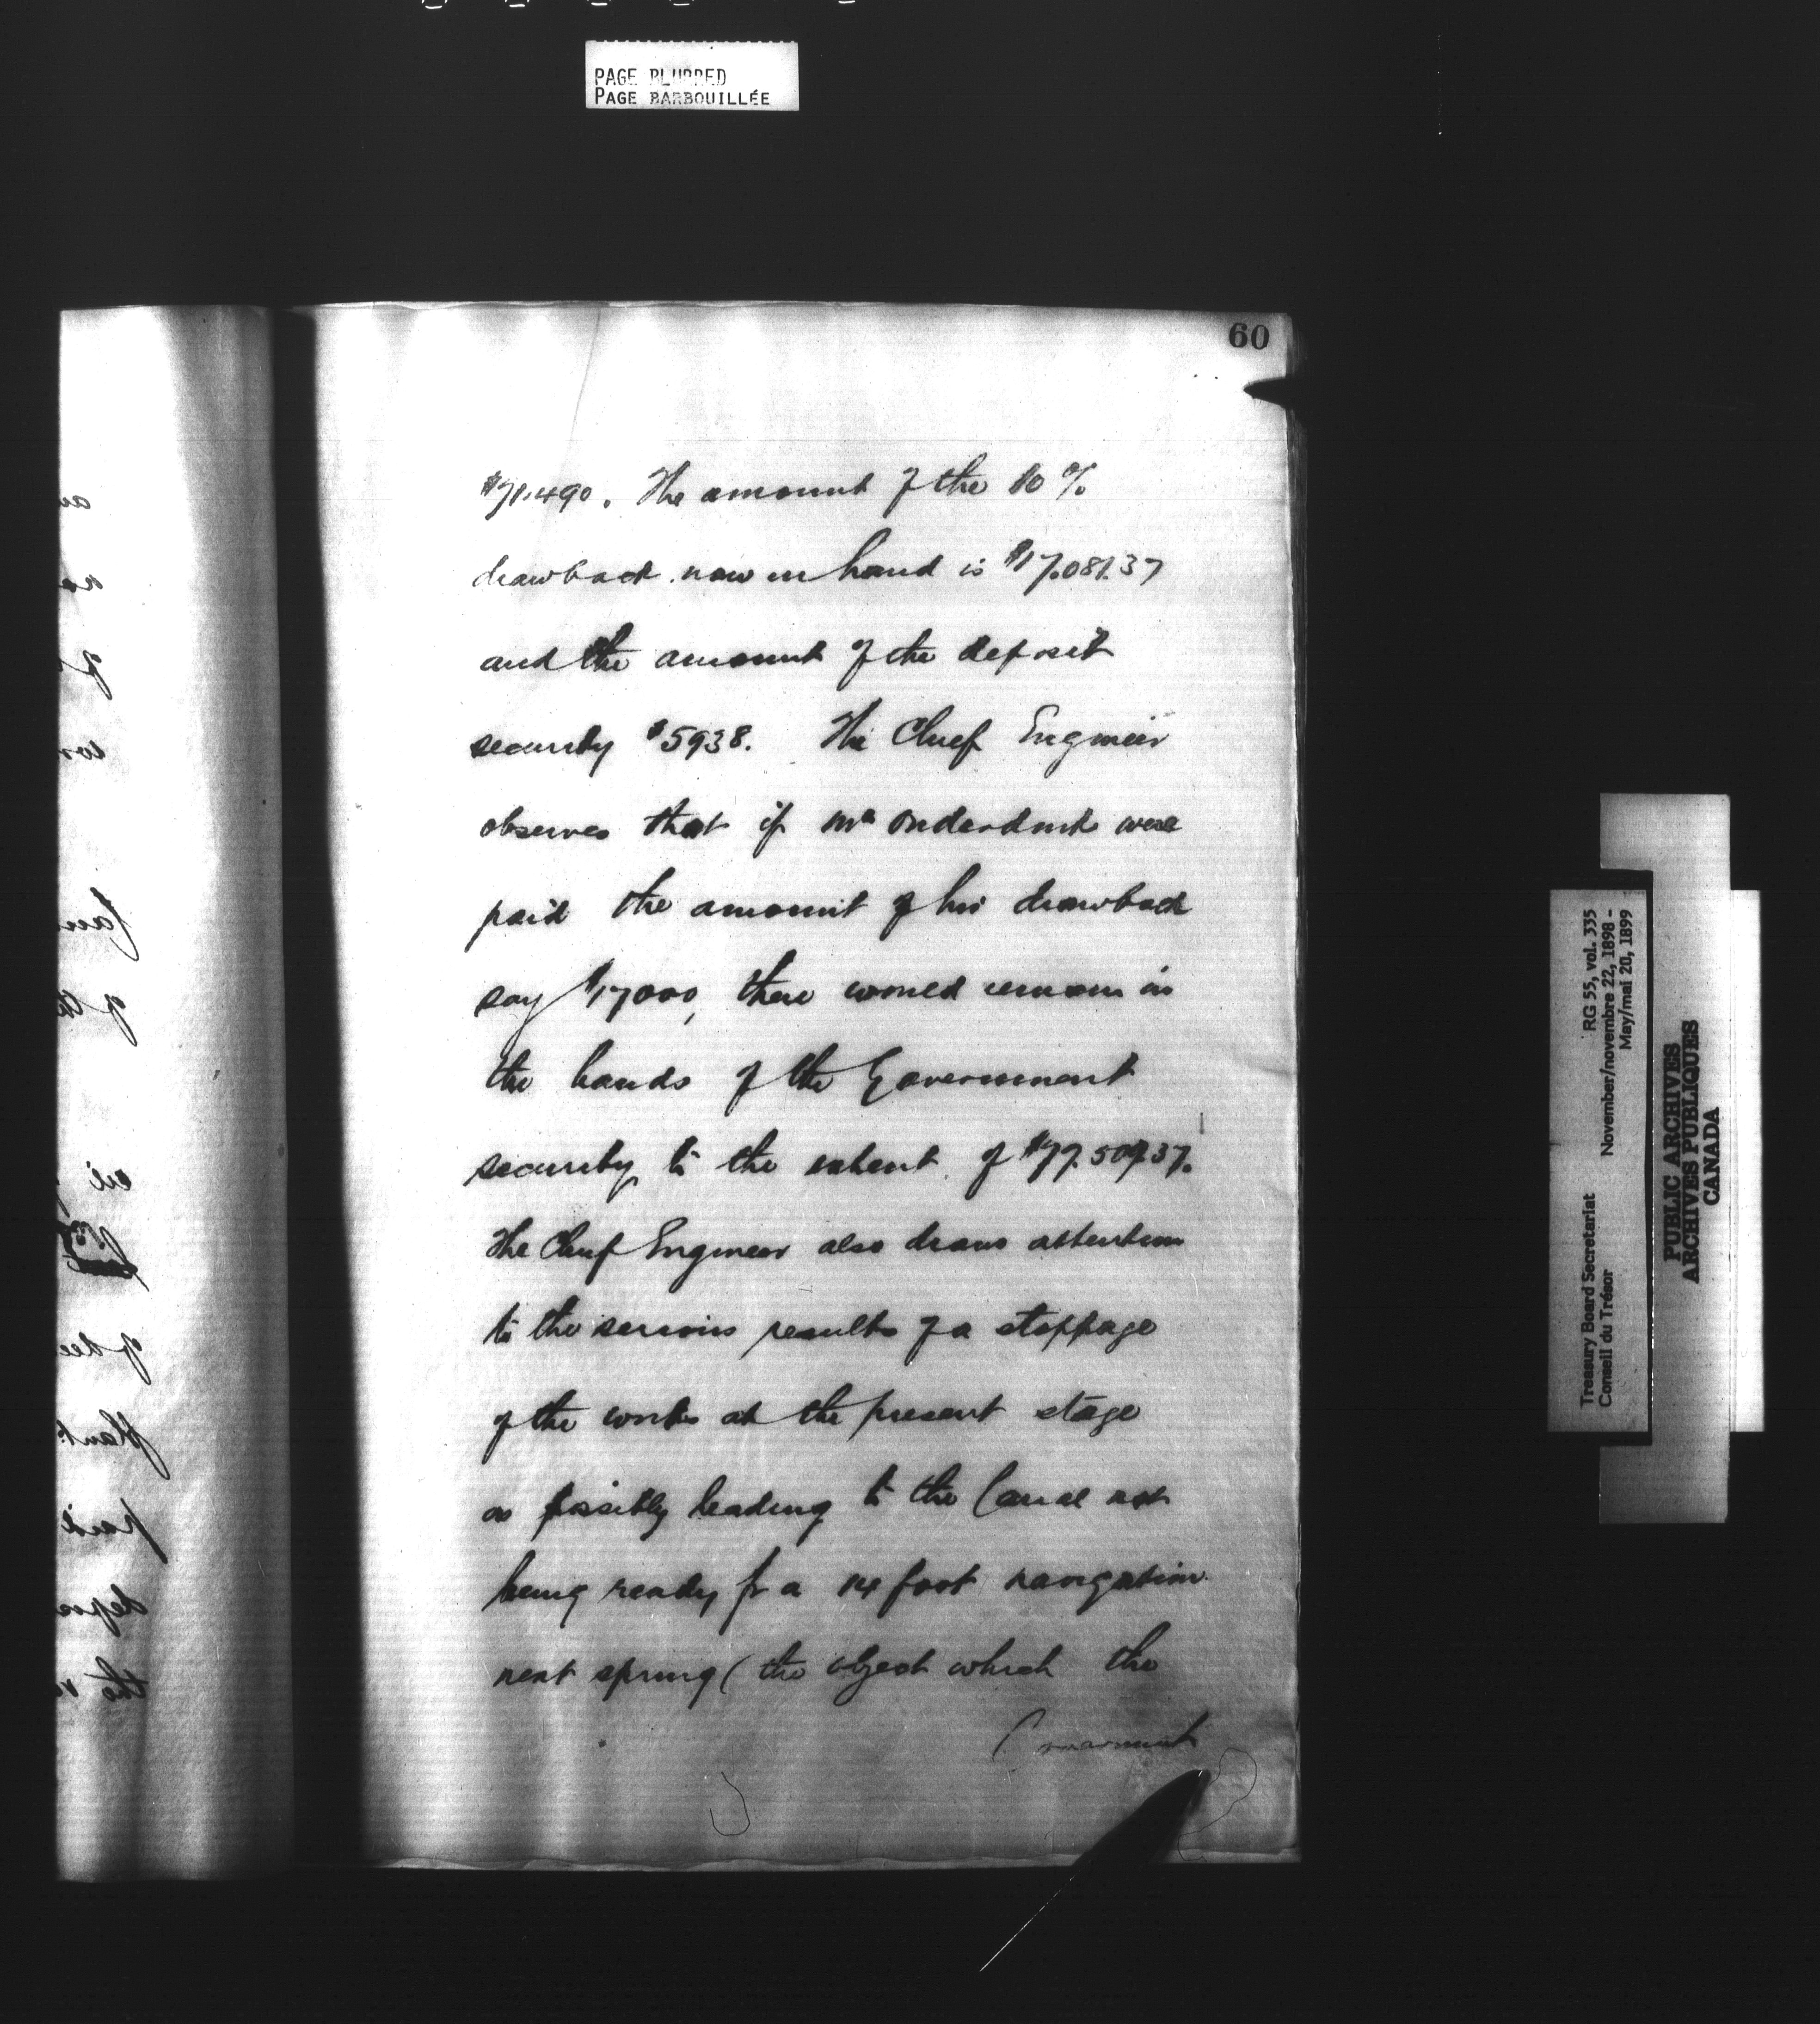 PAGE BLURRED
PAGE BARBOUILLÉE
60
$71.490. The amount of the 10 %
drawback now in hand is $17.081.37
and the amount of the deposit
security $5938. The Chief Engineer
observes that if Mr Onderdonk were
paid the amount of his drawback
say $17000, there would remain in
the hands of the Government
security to the extent of $77.509.37.
The Chief Engineer also draws attention
to the serious results of a stoppage
of the works at the present stage
as possibly leading to the Canal not
being ready for a 14 foot navigation
next spring (the object which the
Government
Treasury Board Secretariat RG 55, vol. 335
Conseil du Trésor November/novembre 22, 1898 -
May/mai 20, 1899
PUBLIC ARCHIVES
ARCHIVES PUBLIQUES
CANADA